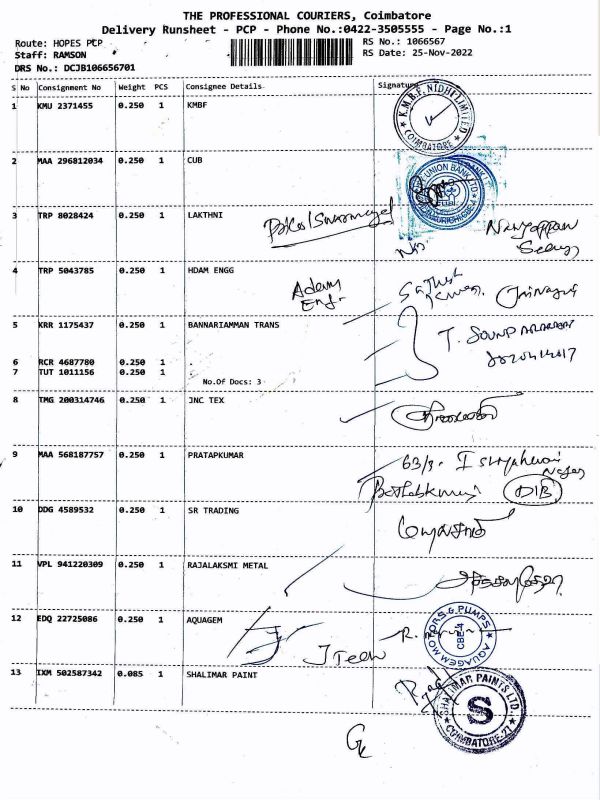 THE PROFESSIONAL COURIERS, Coimbatore
Delivery Runsheet - PCP - Phone No.:0422-3505555 - Page No.:1
Route: HOPES PCP
RS No.: 1066567
Staff: RAMSON
RS Date: 25-Nov-2022
DRS No.: DCJB106656701
S No Consignment No Weight PCS Consignee Details Signature
1 KMU 2371455 0.250 1 KMBF
K.M.B.F. NIDHI LIMITED COIMBATORE
2 MAA 296812034 0.250 1 CUB
UNION BANK LTD
3 TRP 8028424 0.250 1 LAKTHNI
4 TRP 5043785 0.250 1 HDAM ENGG
Adam
Sathish
Kumar
5 KRR 1175437 0.250 1 BANNARIAMMAN TRANS
6 RCR 4687780 0.250 1
7 TUT 1011156 0.250 1
No.Of Docs: 3
8 TMG 200314746 0.250 1 JNC TEX
9 MAA 568187757 0.250 1 PRATAPKUMAR
10 DDG 4589532 0.250 1 SR TRADING
11 VPL 941220309 0.250 1 RAJALAKSMI METAL
12 EDQ 22725086 0.250 1 AQUAGEM
AQUAGEM MOTORS & PUMPS CBE-4
J Tech
13 IXM 502587342 0.085 1 SHALIMAR PAINT
SHALIMAR PAINTS LTD. S COIMBATORE-27